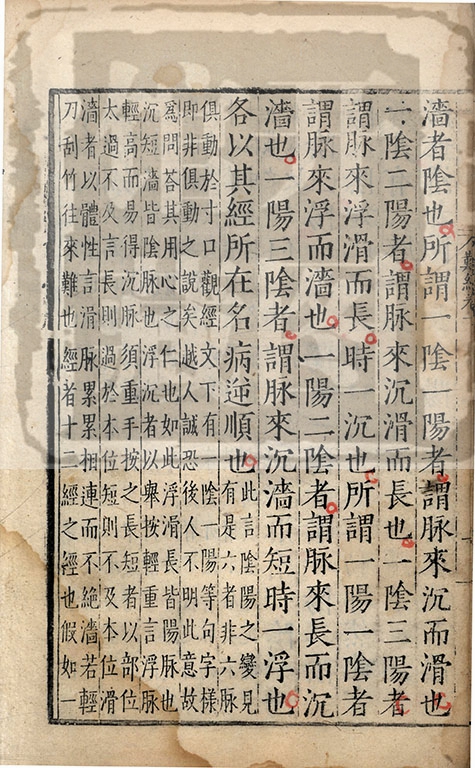 濇者陰也所謂一陰一陽者謂脈來沉而滑也
一陰二陽者謂脈來沉滑而長也一陰三陽者
謂脈來浮滑而長時一沉也所謂一陽一陰者
謂脈來浮而濇也一陽二陰者謂脈來長而沉
濇也一陽三陰者謂脈來沉濇而短時一浮也
各以其經所在名病逆順也此言陰陽之變見
有是六者非六脈
俱動於寸口觀經文下有一陰一陽等句字樣
即非俱動之說矣越人誠恐後人不明此意故
爲問荅其用心之仁也如此浮滑長皆陽脈也
沉短濇皆陰脈也浮沉者以舉按輕重言浮脈
輕高而易得沉脈須重手按之長短者以部位
太過不及言長則過於本位短則不及本位滑
濇者以體性言滑脈累累相連而不絕濇若輕
刀刮竹往來難也經者十二經之經也假如一